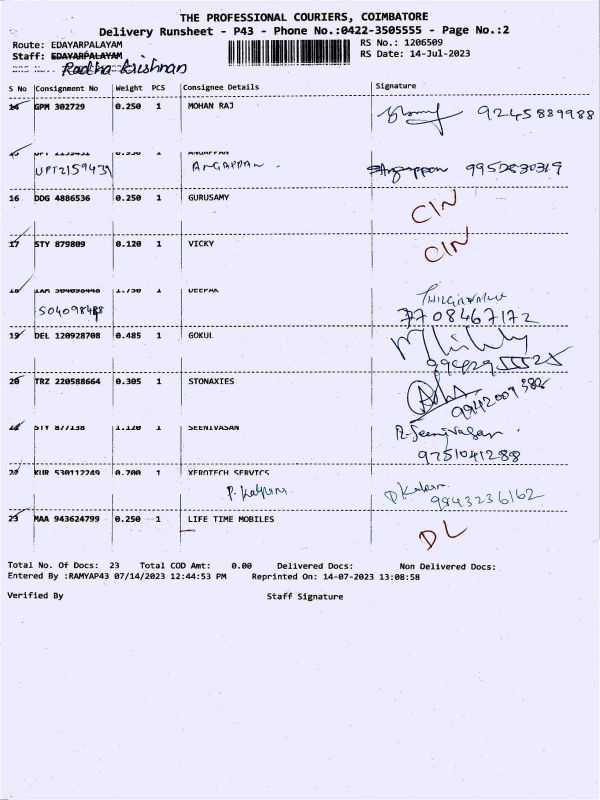 THE PROFESSIONAL COURIERS, COIMBATORE
Delivery Runsheet - P43 - Phone No.:0422-3505555 - Page No.:2
Route: EDAYARPALAYAM
RS No.: 1206509
Staff: EDAYARPALAYAM
RS Date: 14-Jul-2023
Radha Krishnan
S No Consignment No Weight PCS Consignee Details Signature
14 GPM 302729 0.250 1 MOHAN RAJ 9245889988
15 1 ANGAPPAN
UPT2159431 ANGAPPAN . Angappan
16 DDG 4886536 0.250 1 GURUSAMY CIN
17 STY 879809 0.120 1 VICKY CIN
18 1.750 1 DEEPAK
7708467172
19 DEL 120928708 0.485 1 GOKUL
20 TRZ 220588664 0.305 1 STONAXIES
STY 877138 1.120 1 SEENIVASAN R-Seenivasan .
9751041288
22 KUR 530112249 0.700 1 XEROTECH SERVICS
P. Kalpana 9943236162
23 MAA 943624799 0.250 1 LIFE TIME MOBILES DL
Total No. Of Docs: 23 Total COD Amt: 0.00 Delivered Docs: Non Delivered Docs:
Entered By :RAMYAP43 07/14/2023 12:44:53 PM Reprinted On: 14-07-2023 13:08:58
Verified By Staff Signature